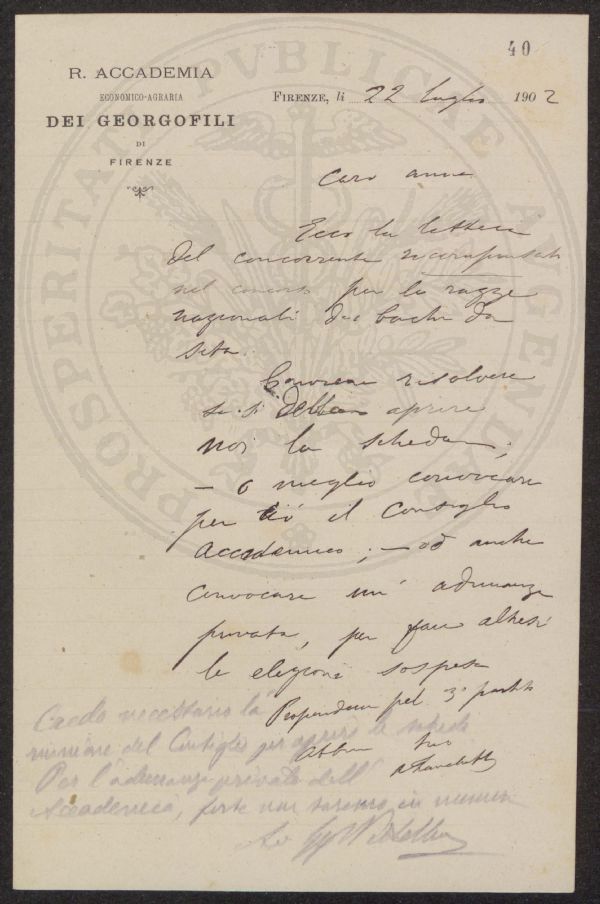 40
R. ACCADEMIA
ECONOMICO-AGRARIA
DEI GEORGOFILI
DI
FIRENZE
FIRENZE, li 22 luglio 1902
PROSPERITATI PVBLICAE AVGENDAE
Caro
Ecco la lettera
del concorrente ricompensato
nel concorso per le razze
nazionali dei bachi da
seta.
Conviene risolvere
se si debba aprire
noi la scheda;
– o meglio convocare
per ciò il Consiglio
Accademico; – od anche
convocare un' adunanza
privata, per fare altresì
le elezioni sospese
Propenderei pel 3° partito
tuo
Credo necessario la
riunione del Consiglio per aprire le schede
Per l'adunanza privata dell'
Accademia, forse non saremo in numero